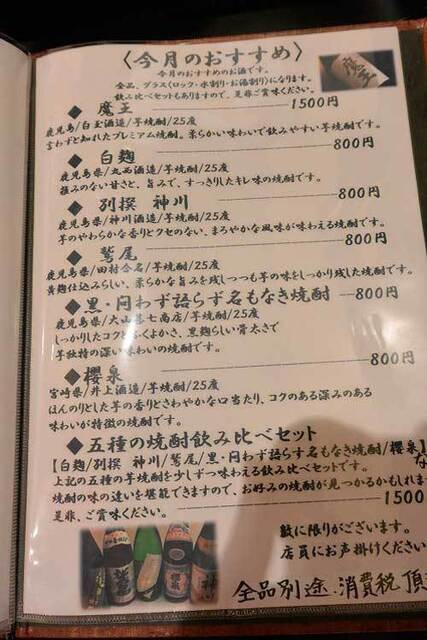 〈今月のおすすめ〉
今月のおすすめのお酒です。
全品、グラス(ロック・水割り・お湯割り)になります。
飲み比べセットもありますので、是非ご賞味ください。
魔王
◆ 魔王 1500円
鹿児島/白玉酒造/芋焼酎/25度
言わずと知れたプレミアム焼酎。柔らかい味わいで飲みやすい芋焼酎です。
◆ 白麹 800円
鹿児島県/丸西酒造/芋焼酎/25度
雑みのない甘さと、旨みで、すっきりしたキレ味の焼酎です。
◆ 別撰 神川 800円
鹿児島県/神川酒造/芋焼酎/25度
芋のやわらかな香りとクセのない、まろやかな風味が味わえる焼酎です。
◆ 鷲尾 800円
鹿児島県/田村合名/芋焼酎/25度
黄麹仕込みらしい、柔らかな旨みを残しつつも芋の味をしっかり残した焼酎です。
◆ 黒・問わず語らず名もなき焼酎 800円
鹿児島県/大山甚七商店/芋焼酎/25度
しっかりしたコクとふくよかさ、黒麹らしい骨太さで
芋独特の深い味わいの焼酎です。
◆ 櫻泉 800円
宮崎県/井上酒造/芋焼酎/25度
ほんのりとした芋の香りとさわやかな口当たり、コクのある深みのある
味わいが特徴の焼酎です。
◆ 五種の焼酎飲み比べセット
【白麹/別撰 神川/鷲尾/黒・問わず語らず名もなき焼酎/櫻泉】
上記の五種の芋焼酎を少しずつ味わえる飲み比べセットです。
焼酎の味の違いを堪能できますので、お好みの焼酎が見つかるかもしれませ
是非、ご賞味ください。 1500
数に限りがございます。
店員にお声掛けください
全品別途、消費税 頂